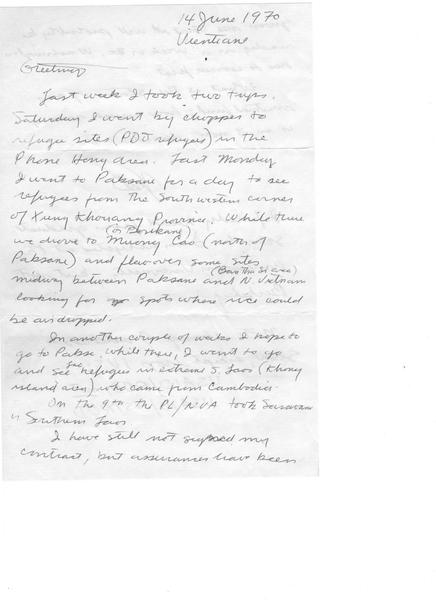 14 June 1970
Vientiane
Greetings
Last week I took two trips.
Saturday I went by chopper to
refugee sites (PDJ refugees) in the
Phone Hong area. Last Monday
I went to Paksane for a day to see
refugees from the Southwestern corner
of Xieng Khouang Province. While there
(or Borikane)
we drove to Muong Cao (north of
Paksane) and flew over some sites
(Bara Tha Si area)
midway between Paksane and N. Vietnam
looking for spots where rice could
be airdropped.
In another couple of weeks I hope to
go to Pakse. While there, I want to go
and see the refugees in extreme S. Laos (Khong
island area) who came from Cambodia.
On the 9th the PL/NVA took Saravane
in Southern Laos
I have still not signed my
contract, but assurances have been